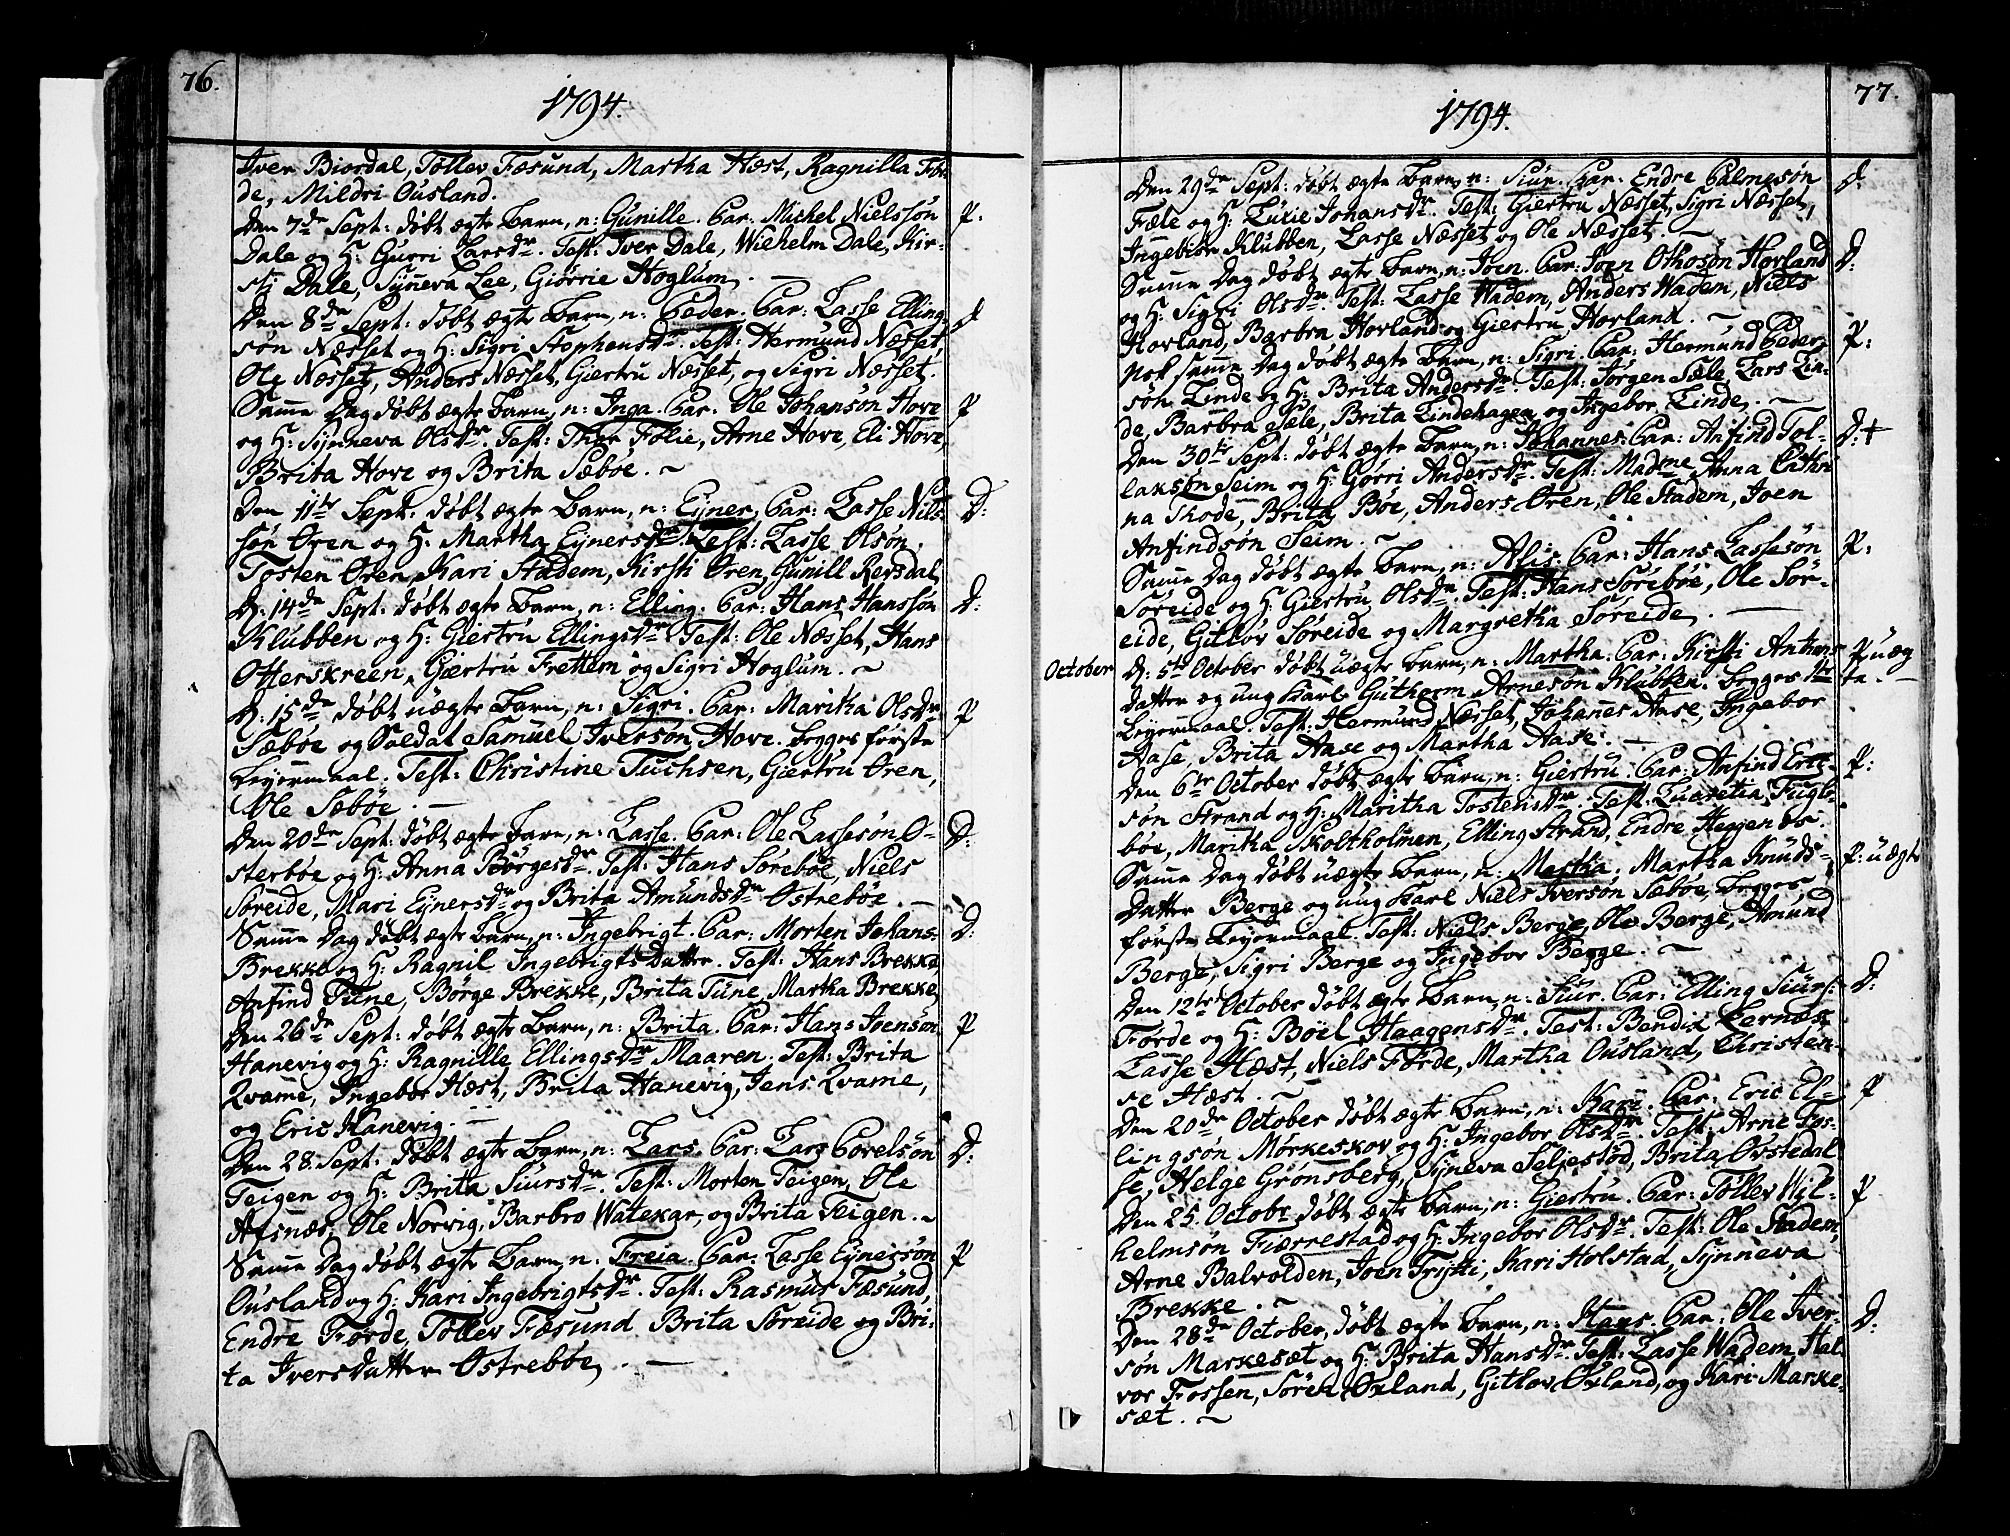 76.
1794.
Iver Biordal, Tollev Fæsund, Martha Hæst, Ragnilla För-
de, Mildri Ousland.
Den 7de Sept: döbt ægte Barn, n: Gunille. Par: Michel Nielssön
P.
Dale og H: Gurri Larsdr. Test: Iver Dale, Wilhelm Dale, Kir-
sti Dale, Synneva Lee, Giörrie Hoglum. —
Den 8de Sept: döbt ægte Barn, n: Peder. Par: Lasse Elling
D
sön Næsset og H: Sigri Stophensdr. Test: Hermund Næsset,
Ole Næsset, Anders Næsset, Giertru Næset, og Sigri Næsset.
Samme Dag döbt ægte Barn, n: Inga. Par. Ole Johansön Hove
P
og H: Synneva Olsdr. Test: Ther Folie, Arne Hove, Eli Hove,
Brita Hove og Brita Sæböe. ~
Den 11te Sept. döbt ægte Barn, n: Eyner. Par: Lasse Nils-
D:
sön Ören og H: Martha Eynersdr. Test: Lasse Olsön.
Tosten Ören, Kari Stadem, Kirsti Ören, Gunill Refsdal,
D: 14de Sept: döbt ægte Barn, n: Elling. Par: Hans Hanssön
D:
Klubben og H: Giertru Ellingsdr. Test: Ole Næsset, Hans
Otterskreen, Giertru Frettem og Sigri Hoglum. ~
D: 15de döbt uægte Barn, n: Sigri. Par: Maritha Olsdr
P
Sæböe og Soldat Samuel Iversön Hove. begges förste
Leyermaal. Test: Christine Tuchsen, Giertru Ören,
Ole Sæböe. —
Den 20de Sept: döbt ægte Barn, n: Lasse. Par: Ole Lassesön O-
D:
sterböe og H: Anna Börgesdr. Test: Hans Söreböe, Niels
Söreide, Mari Eynersdr og Brita Amundsdr Ostreböe. —
Samme Dag döbt ægte Barn, n: Ingebrigt. Par: Morten Johans:
D:
Brekke og H: Ragnil Ingebrigts Datter. Test: Hans Brekke
Anfind Tune, Börge Brekke, Brita Tune, Martha Brekke
Den 26de Sept: döbt ægte Barn, n: Brita. Par: Hans Joensön
P
Hanevig og H: Ragnille Ellingsdr Maaren. Test: Brita
Qvame, Ingebor Hæst, Brita Hanevig, Jens Qvame,
og Eric Hanevig. —
Den 28. Sept: döbt ægte Barn, n: Lars. Par: Lars Povelsön
D:
Teigen og H: Brita Siursdr. Test: Morten Teigen, Ole
Afsnæs, Ole Norvig, Barbro Watekar, og Brita Teigen. ~
Samme Dag döbt ægte Barn, n: Freia. Par: Lasse Eynersön
P
Ousland og H: Kari Ingebrigtsdr. Test: Rasmus Fæsund,
Endre Förde, Tollev Fæsund. Brita Söreide og Bri-
ta Iversdatter Ostreböe. —
77.
1794.
Den 29de Sept: döbt ægte Barn, n: Siur. Par: Endre Palmesön
D:
Fæle og H: Lucie Johansdr. Test: Giertru Næsset, Sigri Næsset,
Ingebior Klubben, Lasse Næsset og Ole Næsset. —
Samme Dag döbt ægte Barn, n: Joen. Par: Joen Othosön Hovland
D:
og H: Sigri Olsdr. Test: Lasse Wadem, Anders Wadem, Niels
Hovland, Barbra Hovland og Giertru Hovland. ~
Nok samme Dag döbt ægte Barn, n: Sigri. Par: Hermund Peder-
P:
sön Linde og H: Brita Andersdr. Test: Jörgen Sæle, Lars Lin-
de, Barbra Sæle, Brita Lindehagen og Ingebor Linde. —
Den 30te Sept: döbt ægte Barn, n: Johannes. Par: Anfind Tol-
D: +
laksön Seim og H: Görri Andersdr. Test: Madme Anna Cathri
na Skode, Brita Böe, Anders Ören, Ole Stadem, Joen
Anfindsön Seim. ~
Samme Dag döbt ægte Barn, n: Alis. Par: Hans Lassesön
P:
Söreide og H: Giertru Olsdr. Test: Hans Söreböe, Ole Sör-
eide, Gitlöv Söreide og Margretha Söreide. —
October
D: 5te October döbt uægte Barn, n: Martha. Par: Kirsti Anthuns
P uæg
te. —
datter og ung Karl Gutherm Arnesön Klubben. begges 1te
Leyermaal. Test. Hermund Næsset, Johannes Aase, Ingebor
Aase, Brita Aase og Martha Aase. —
Den 6te October döbt ægte Barn, n: Giertru. Par: Anfind Eric-
P:
sön Strand og H: Maritha Tostensdr. Test: Lucretia Fugle-
böe, Maritha Skoltholmen, Elling Strand, Endre Heggenes.
Samme Dag döbt uægte Barn, n: Martha. Martha Knuds-
P: uægte
datter Berge og ung Karl Niels Iversön Sæböe, begges
förste Leyermaal. Test: Niels Berge, Ole Berge, Amund
Berge, Sigri Berge og Ingebor Berge. ~
Den 12te October döbt ægte Barn, n: Siur. Par: Elling Siurs:
D:
Förde og H: Boel Haagensdr. Test: Bendix Lernæs
Lasse Hæst, Niels Förde, Martha Ousland, Christen-
se Hæst. ~
Den 20de October döbt ægte Barn, n: Kari. Par: Eric El-
P
lingsön Mörkeskov og H: Ingebor Olsdr. Test: Arne Fos-
se, Helge Grönsberg, Syneva Seljestod, Brita Ovstedal
Den 25. Octobr döbt ægte Barn, n: Giertru. Par: Töllev Wil-
P
helmsön Fiærrestad og H: Ingebor Olsdr. Test: Ole Stadem,
Arne Balvolden, Joen Trytti, Kari Holstad, Synneva
Brekke. ~
Den 28de October, döbt ægte Barn, n: Hans. Par: Ole Iver-
D:
sön Markesæt og H: Brita Hansdr. Test: Lasse Wadem, Hal-
vor Fossen, Sören Öxland, Gitlöv Öxland, og Kari Marke-
sæt. ~